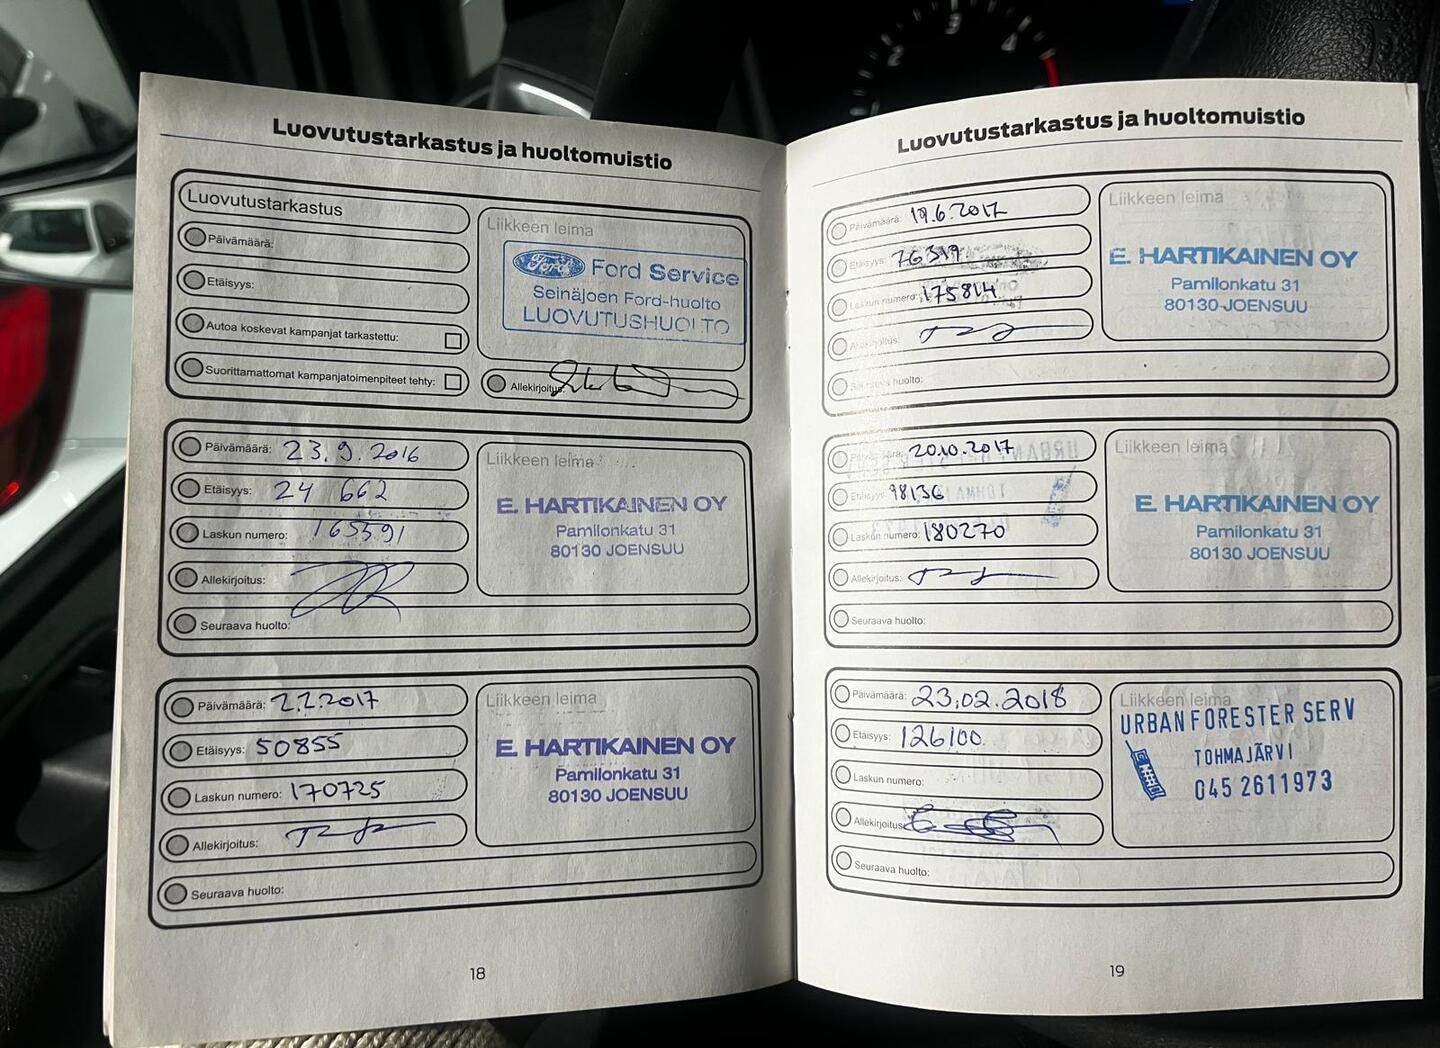 Luovutustarkastus ja huoltomuistio
Luovutustarkastus
Päivämäärä:
Etäisyys:
Autoa koskevat kampanjat tarkastettu:
Suorittamattomat kampanjatoimenpiteet tehty:
Liikkeen leima
Ford Ford Service
Seinäjoen Ford-huolto
LUOVUTUSHUOLTO
Allekirjoitus:
Päivämäärä: 23.9.2016
Etäisyys: 24 662
Laskun numero: 165391
Allekirjoitus:
Seuraava huolto:
Liikkeen leima
E. HARTIKAINEN OY
Pamilonkatu 31
80130 JOENSUU
Päivämäärä: 2.2.2017
Etäisyys: 50855
Laskun numero: 170725
Allekirjoitus:
Seuraava huolto:
Liikkeen leima
E. HARTIKAINEN OY
Pamilonkatu 31
80130 JOENSUU
18
Luovutustarkastus ja huoltomuistio
Päivämäärä: 19.6.2017
Etäisyys: 76319
Laskun numero: 175814
Allekirjoitus:
Seuraava huolto:
Liikkeen leima
E. HARTIKAINEN OY
Pamilonkatu 31
80130 JOENSUU
Päivämäärä: 20.10.2017
Etäisyys: 98136
Laskun numero: 180270
Allekirjoitus:
Seuraava huolto:
Liikkeen leima
E. HARTIKAINEN OY
Pamilonkatu 31
80130 JOENSUU
Päivämäärä: 23.02.2018
Etäisyys: 126100
Laskun numero:
Allekirjoitus:
Seuraava huolto:
Liikkeen leima
URBAN FORESTER SERV
TOHMAJÄRVI
045 2611973
19